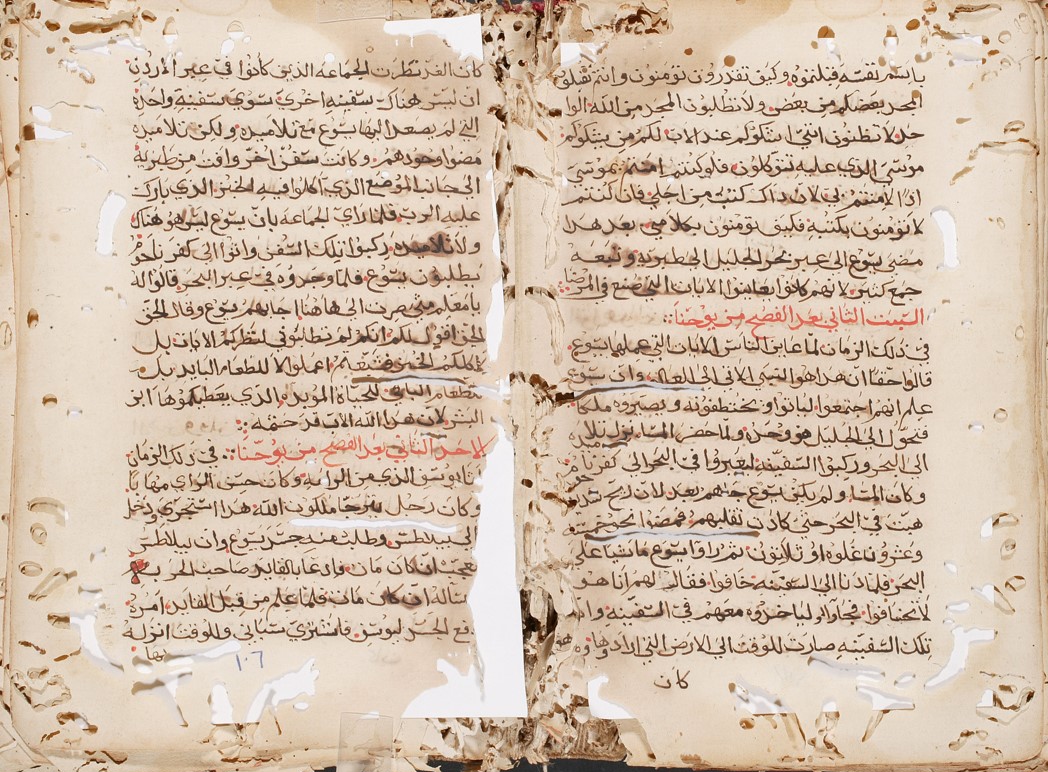 باسم نفسه قبلتموه وكيف تقدرون تومنون وانتم تقبلو
المجد بعضكم من بعض ولا تطلبون المجد من الله الوا
حد لا تظنون انني اشكوكم عند الاب لكم من يشكوكم
موسى الذي عليه تتوكلون فلو كنتم امنتم بموسى
اذا لامنتم لي لان ذاك كتب من اجلي فان كنتم
لا تومنون بكتبه فكيف تومنون بكلامي بعد هدا
مضى يسوع الى عبر بحر الجليل الى طبريه وتبعه
جمع كتير لانهم كانوا يعاينوا الايات التي صنع في المرضا
السبت الثاني بعد الفصح من يوحنا
في ذلك الزمان لما عاين الناس الايات التي عملها يسوع
قالوا حقا ان هدا هو النبي الاتي الى العالم وان يسوع
علم انهم اجتمعوا لياتوا ويختطفونه ويصيروه ملكا
فتحول الى الجليل هو وحده ولما حضر المسا نزل تلاميده
الى البحر وركبوا السفينه ليعبروا في البحر الى كفرنا حو
وكان المسا ولم يكن يسوع جاهم بعد لان ريح شديده
هبت في البحر حتى كادت تقلبهم فمضوا نحو خمسة
وعشرون غلوه او ثلاثون ثم راوا يسوع ماشيا على
البحر فلما دنا الى السفينه خافوا فقال لهم انا هو
لا تخافوا فجاوا لياخدوه معهم في السفينه وان
تلك السفينه صارت للوقت الى الارض التي ارادوها
كان
كان الغد نظرت الجماعه الذين كانوا في عبر الاردن
ان ليس هناك سفينه اخرى سوى سفينه واحده
التي لم يصعد اليها يسوع مع تلاميده ولكن تلاميده
مضوا وحدهم وكانت سفن اخر وافت من طبرية
الى جانب الموضع الذي اكلوا فيه الخبز الذي بارك
عليه الرب فلما راي الجماعه بان يسوع ليس هو هناك
ولا تلاميده ركبوا تلك السفن واتوا الى كفرناحوم
يطلبون يسوع فلما وجدوه في عبر البحر قالوا له
يا معلم متى صرت الى هاهنا اجابهم يسوع وقال الحق
الحق اقول لكم انكم لم تطلبوني لنظركم الايات بل
لاكلكم الخبز وشبعتم اعملوا لا للطعام البايد بل
للطعام الباقي للحياه المؤبده الذي يعطيكموها ابن
البشر لان هدا الله الاب قد ختمه
لاحد الثاني بعد الفصح من يوحنا في ذلك الزمان
جا يوسف الذي من الرامة وكان حسن الراي منها با
وكان رجل يترجا ملكوت الله هدا استجرى ودخل
الى بيلاطس وطلب منه جسد يسوع وان بيلاطس
عجب ان كان مات وادعا بالقايد صاحب الحرب
وساله ان كان مات فلما علم من قبل القايد امر
دفع الجسد ليوسف فاشترى سبباني وللوقت انزله
بها
١٠٦